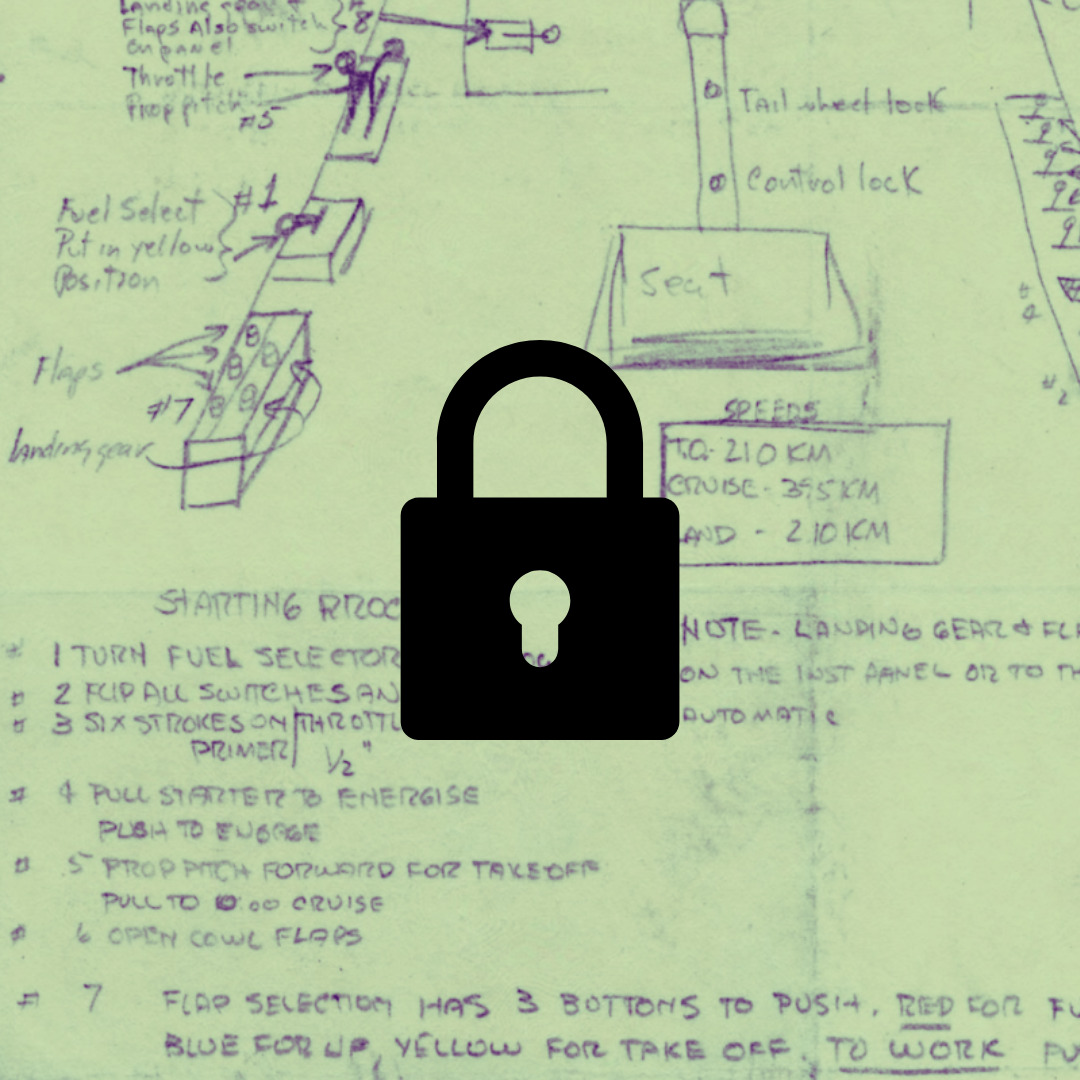 Landing gear &
Flaps Also switch
on panel
#8
Throttle
Prop pitch
#5
Tail wheel lock
Control lock
Fuel Select
Put in yellow
Position
#1
Seat
Flaps
#7
landing gear
#4
#2
SPEEDS
T.O. - 210 KM
CRUISE - 395 KM
LAND - 210 KM
STARTING PROC
# 1 TURN FUEL SELECTOR
# 2 FLIP ALL SWITCHES AN
# 3 SIX STROKES ON THROTTL
PRIMER 1/2"
NOTE - LANDING GEAR & FL
ON THE INST PANEL OR TO TH
AUTOMATIC
# 4 PULL STARTER TO ENERGISE
PUSH TO ENGAGE
# 5 PROP PITCH FORWARD FOR TAKEOFF
PULL TO CRUISE
# 6 OPEN COWL FLAPS
# 7 FLAP SELECTION HAS 3 BOTTONS TO PUSH. RED FOR FU
BLUE FOR UP, YELLOW FOR TAKE OFF. TO WORK PU